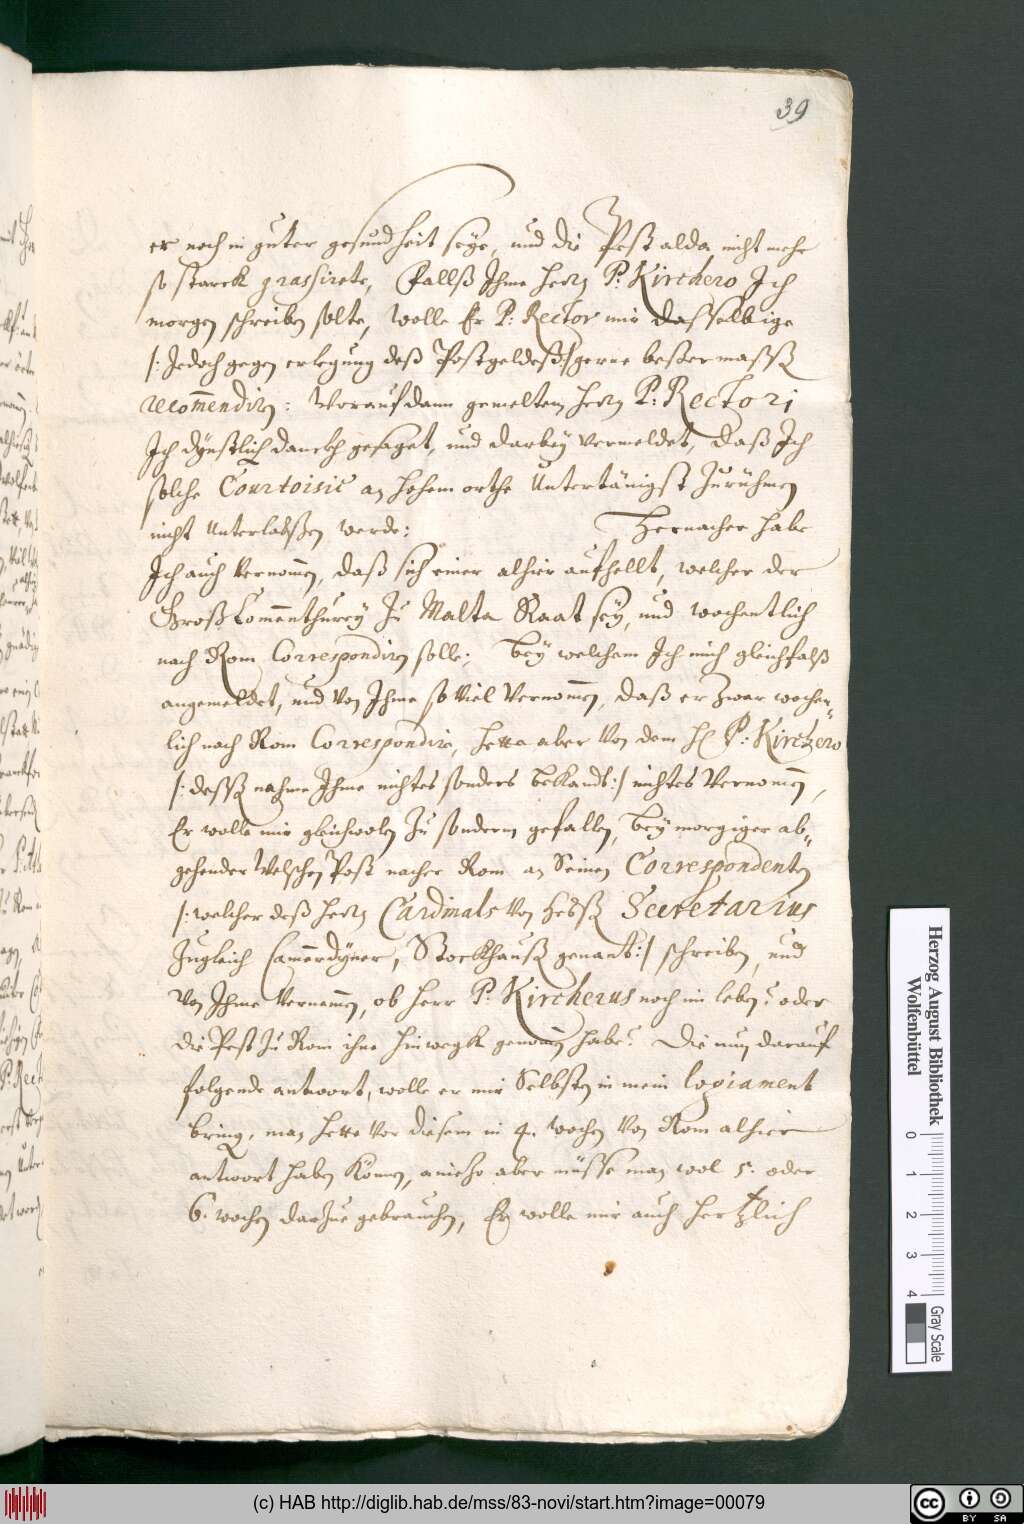 39
er noch in guter gesundheit seye, und die Pest alda nicht mehr
so starck grassirete, Fallß Ihme Herrn P: Kirchero Ich
morgen schreiben solte, wolle Er P: Rector mir dasselbige
/: Jedoch gegen erlegung deß Postgeldeß :/ gerne bester massß
recommendirn: Worauf dann gemeltem Herrn P: Rectori
Ich dynstlich danckh gesaget, und darbey vermeldet, daß Ich
solche Courtoisie an hohem orthe Untertänigst zurühmen
nicht Unterlaßen werde: Hernacher habe
Ich auch vernommen, daß sich einer alhier aufhellt, welcher der
Groß Commenthurey zu Malta Raat sey, und wochentlich
nach Rom Correspondirn solle; bey welchem Ich mich gleichfalß
angemeldet, und von Ihme so viel vernommen, daß er zwar wochen-
lich nach Rom Correspondire, hette aber von dem H P: Kirchero
/: dessß nahme Ihme nichtes sonders bekandt :/ nichtes vernommen,
Er wolle mir gleichwolen zu sonderm gefallen, bey morgiger ab-
gehender Welschen Post nacher Rom an Seinen Correspondenten
/: welcher deß Herrn Cardinals von Heßß Secretarius
zugleich Cammerdyner, Stockhauß genant :/ schreiben, und
von Ihme vernemmen, ob Herr P: Kircherus noch im leben? oder
die Pest zu Rom ihne hinwegk genommen habe? Die nun darauf
folgende antwort, wolle er mir Selbsten in mein logiament
bringen, man hette vor diesem in 4. wochen von Rom alhier
antwort haben können, anietzo aber müsse man wol 5. oder
6. wochen darzue gebrauchen, Er wolle mir auch hertzlich
Herzog August Bibliothek
Wolfenbüttel
0 1 2 3 4
Gray Scale
(c) HAB http://diglib.hab.de/mss/83-novi/start.htm?image=00079
cc BY SA